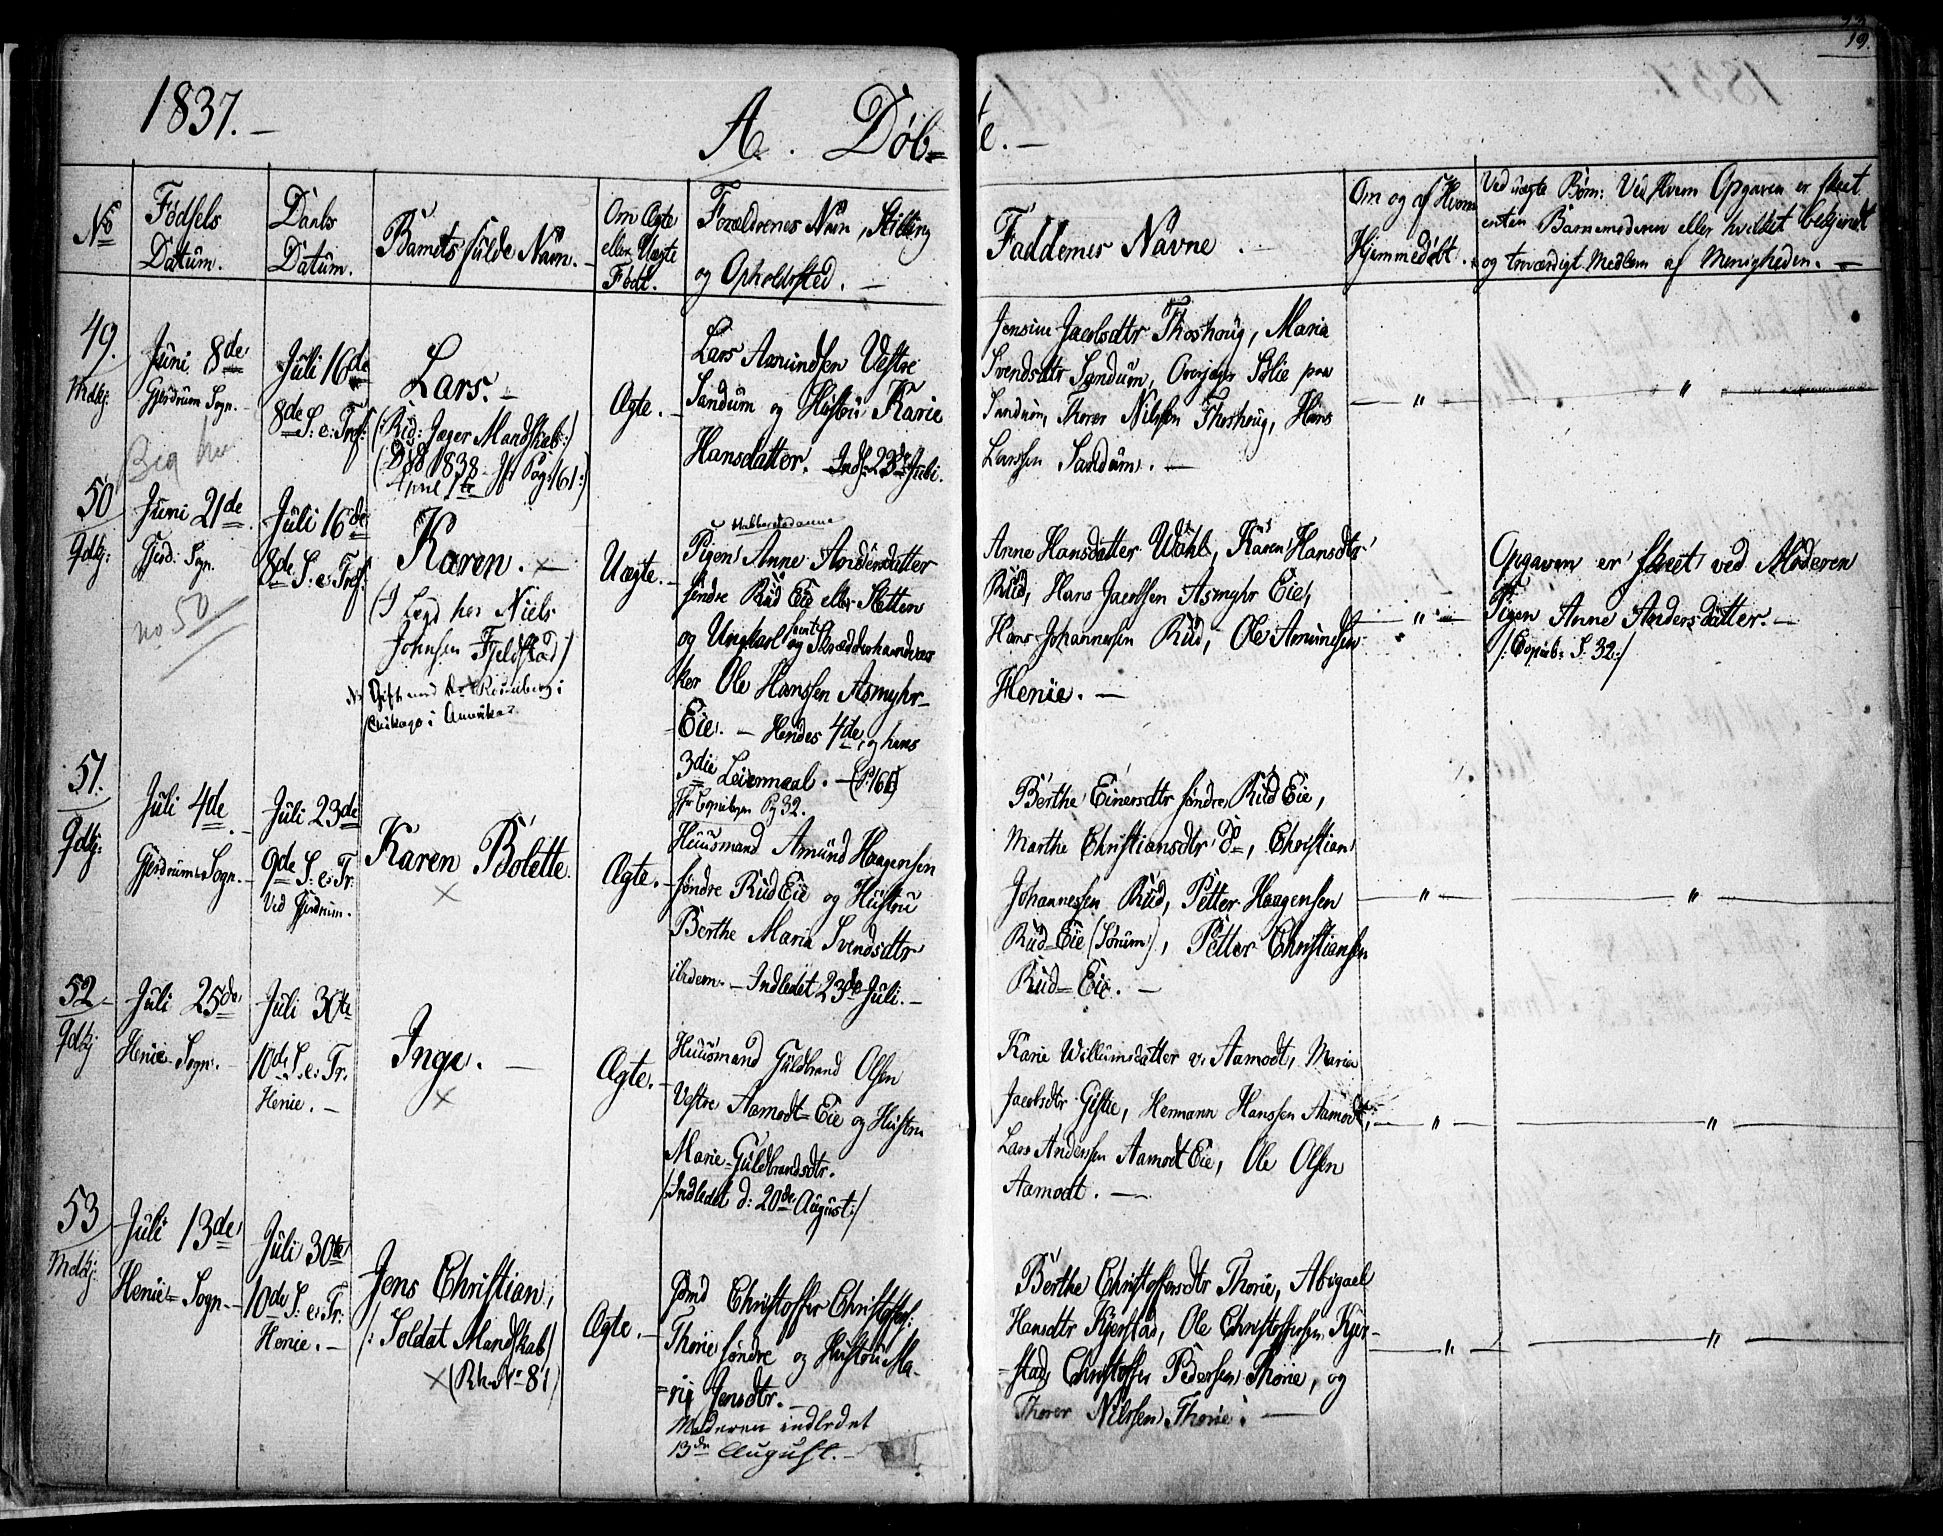 19.
1837. –
A. Døb=
te. –
No
Fødsels
Datum.
Daabs
Datum.
Barnets fulde Navn. –
Om Ægte
eller Uægte
Født.
Forældrenes Navn, Stilling
og Opholdssted. –
Faddernes Navne
Om og af Hvem
Hjemmedøbt.
Ved uægte Børn: Ved Hvem Opgaven er skeet
enten Barnemoderen eller hvilket bekjendt
og troværdigt Medlem af Menigheden. –
49.
Mdkj.
Juni 8de
Gjerdrum Sogn. –
Juli 16de
8de S. e. Tref:
Lars. –
(: Rid: Jæger Mandskab:)
(: Død 1838
April 1ste Jfr Pag: 161:)
Ægte. –
Lars Amundsen Vestre
Sandum og Hustru Karie
Hansdatter. Indl: 23de Juli.
Jensine Jacobsdtr Thoshoug, Maria
Svendsdtr Sandum, Overjæger Solie paa
Sandum, Thorer Nilssen Thoshoug, Hans
Larssen Sandum. –
— " —
"
50
Qdkj:
Juni 21de
Gjerd: Sogn.
no 50
Juli 16de
8de S. e. Tref:
Karen. –
(I Lægd hos Niels
Johnsen Fjeldstad)
Gift med
Chikago i Amerika
Uægte. –
Pigen Anne Andersdatter
søndre Rud Eie eller Sletten
og Ungkarl og Skrædderhaandvær
ker Ole Hanssen Asmyhr–
Eie. – Hendes 4de, og hans
3die Leiermaal. – (P. 161)
Jfr Copiebogen Pg 32.
Anne Hansdatter Wahl, Karen Hansdtr
Rud, Hans Jacobsen Asmyhr Eie,
Hans Johannessen Rud, Ole Amundsen
Henie. –
— " —
Opgaven er skeet ved Moderen
Pigen Anne Andersdatter. –
/: Copieb: S. 32:/
51.
Qdkj:
Juli 4de
Gjerdrums Sogn. –
Juli 23de
9de S. e. Tr.
Ved Gjerdrum.
Karen Bolette.
×
Ægte. –
Huusmand Amund Haagensen
søndre Rud Eie og Hustru
Berthe Maria Svendsdtr
ibidem. – Indledet 23de Juli. –
Berthe Einersdtr søndre Rud Eie,
Marthe Christiansdtr Do, Christian
Johannessen Rud, Petter Haagensen
Rud–Eie (Sørum), Petter Christiansen
Rud–Eie. –
— " —
"
52
Qdkj
Juli 25de
Henie Sogn. –
Juli 30te
10de S. e. Tr.
Henie. –
Inge. –
×
Ægte. –
Huusmand Guldbrand Olsen
Vestre Aamodt–Eie og Hustru
Marie Guldbrandsdtr.
/: Indledet d: 20de August:/
Karie Willumsdatter v. Aamodt, Maria
Jacobsdtr Gistie, Hermann Hanssen Aamodt,
Lars Andersen Aamodt Eie, Ole Olsen
Aamodt. –
— " —
"
53
Mdkj.
Juli 13de
Henie Sogn. –
Juli 30te
10de S. e. Tr:
Henie. –
Jens Christian,
/: Soldat Mandskab)
× (Rk No 81)
Ægte. –
Gmd Christoffer Christoffers:
Thorie søndre og Hustru Ma-
=rie Jensdtr. –
Moderen indledet
13de August. –
Berthe Christoffersdtr Thorie, Abigael
Hansdtr Kjerstad, Ole Christoffersen Kjer-
-stad, Christoffer Pedersen Thorie, og
Thorer Nilssen Thorie. –
— " —
"